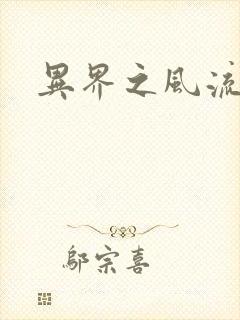 異界之風流
鄔宗喜